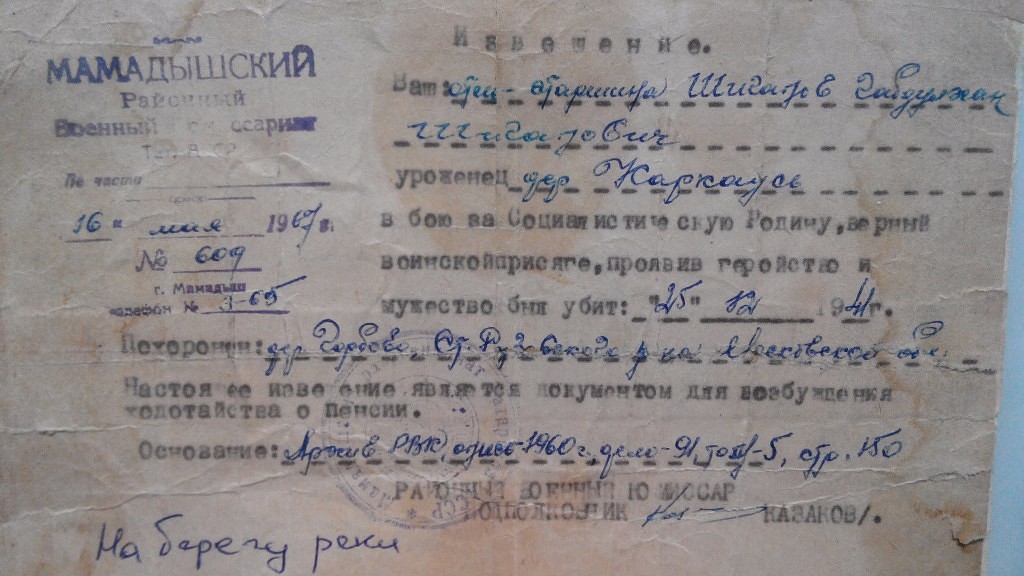 Извещение.
МАМАДЫШСКИЙ
Районный
Военный комиссариат
Тат АССР
По части
16 " мая 1967г.
№ 609
г. Мамадыш
телефон № 3-65
Ваш: отец - старшина Шигапов Габдулхан
Шигапович
уроженец дер Каркаусь
в бою за Социалистическую Родину, верный
воинской присяге, проявив геройство и
мужество был убит: "25" 12 1941г.
Похоронен: дер Горбово, Ст. Рузского р-на Московской обл.
Настоящее извещение является документом для возбуждения
ходотайства о пенсии.
Основание: Архив РВК, опись-1960 г, дело-91, том-5, стр. 150
РАЙОННЫЙ ВОЕННЫЙ КОМИССАР
ПОДПОЛКОВНИК КАЗАКОВ/.
На берегу реки